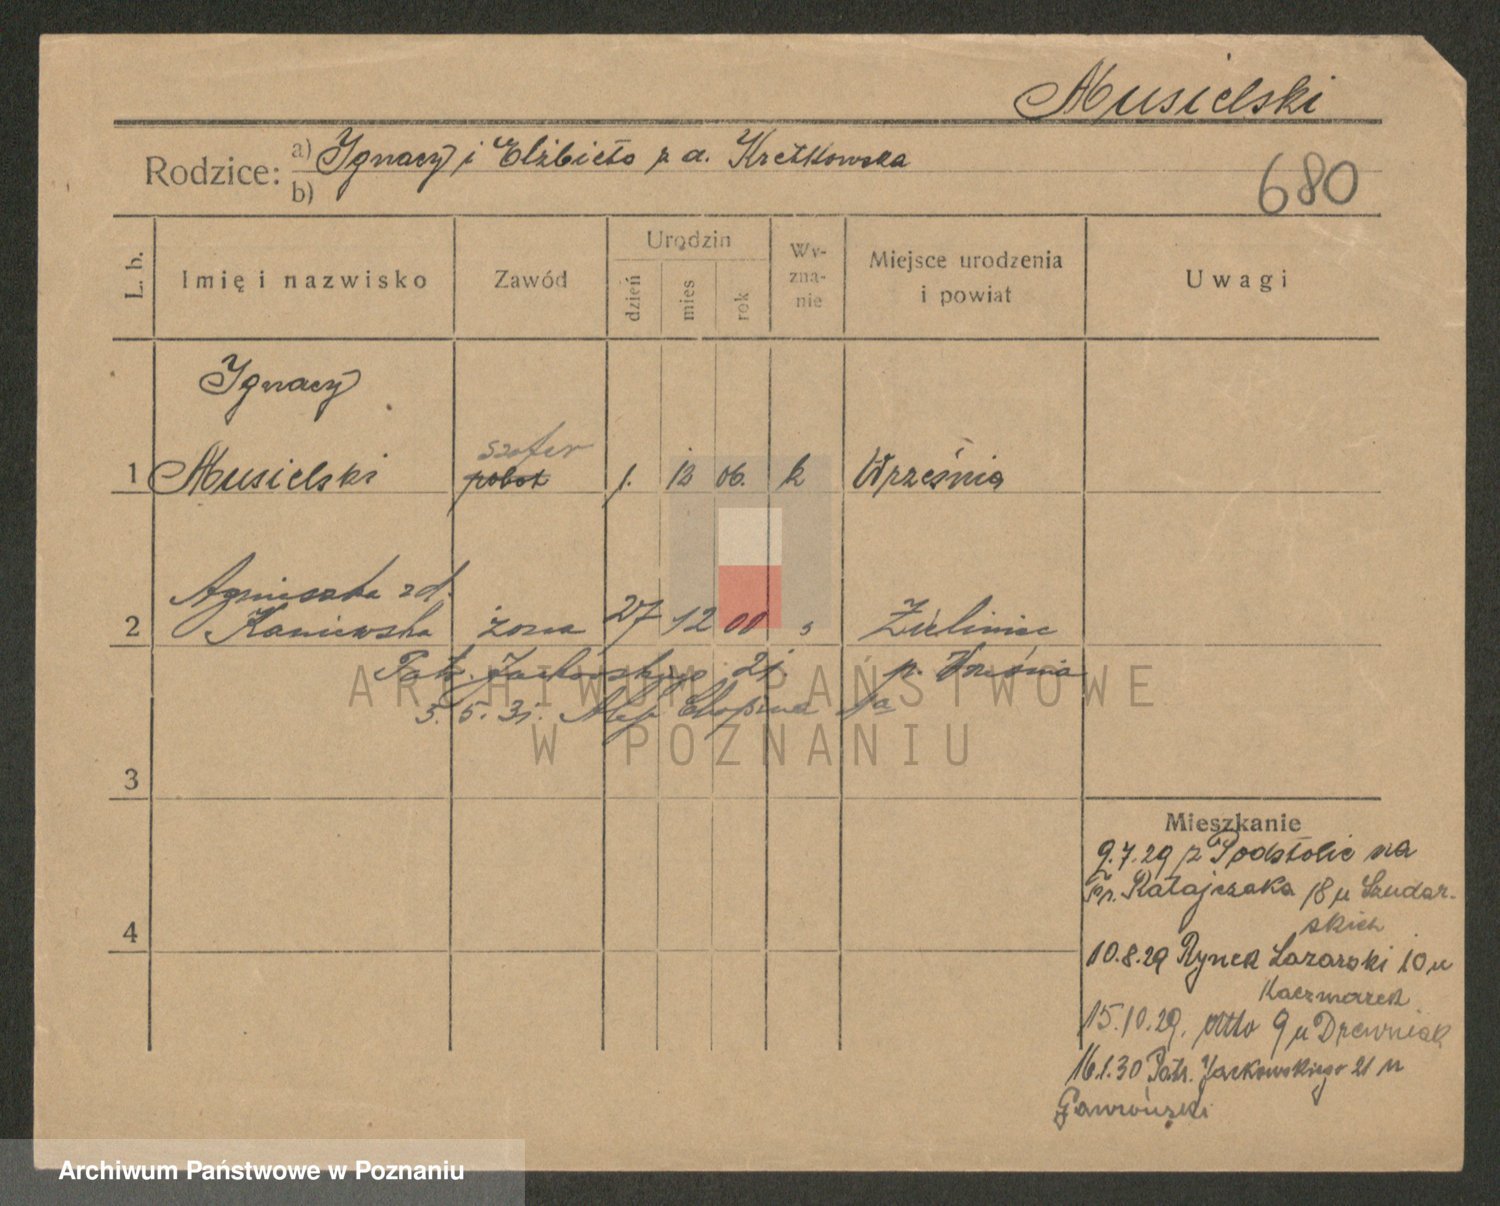 Musielski
Rodzice: a) Ignacy i Elżbieta z d. Kretkowska
b)
680
L. b.
Imię i nazwisko
Zawód
Urodzin
dzień
mies
rok
Wy-
zna-
nie
Miejsce urodzenia
i powiat
Uwagi
Ignacy
szofer
1 Musielski robot 1. 12 06. k Września
Agnieszka zd.
2 Kaniewska żona 27 12 00 Zieliniec
Patr. Jackowskiego 21. p. Września
5.5.31. Chopina 1a
3
4
Mieszkanie
9.7.29 z Podstolic na
Fr. Ratajczaka 18 u Szudar-
skich
10.8.29 Rynek Łazarski 10 u
Kaczmarek
15.10.29. Otto 9 u Drewniak
16.1.30 Patr. Jackowskiego 21 u
Gawroński
ARCHIWUM PAŃSTWOWE
W POZNANIU
Archiwum Państwowe w Poznaniu